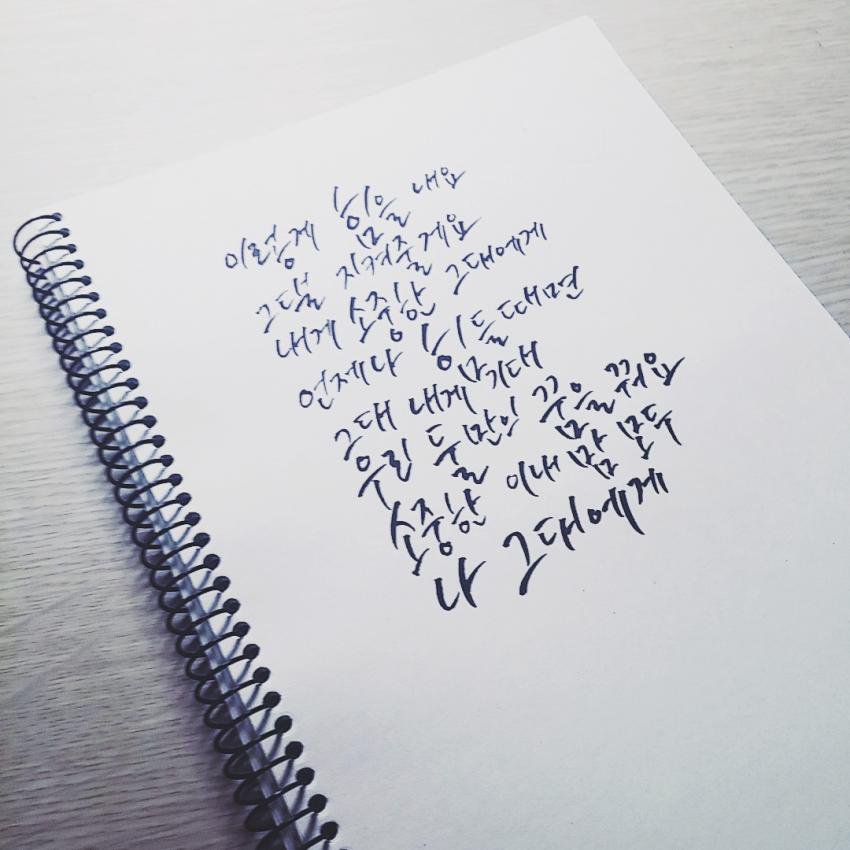 이렇게 힘을 내요
그댈 지켜줄게요
내게 소중한 그대에게
언제나 힘이 들 때면
그대 내게 기대
우린 둘만의 꿈을 꿔요
소중한 이 내 맘 모두
나 그대에게